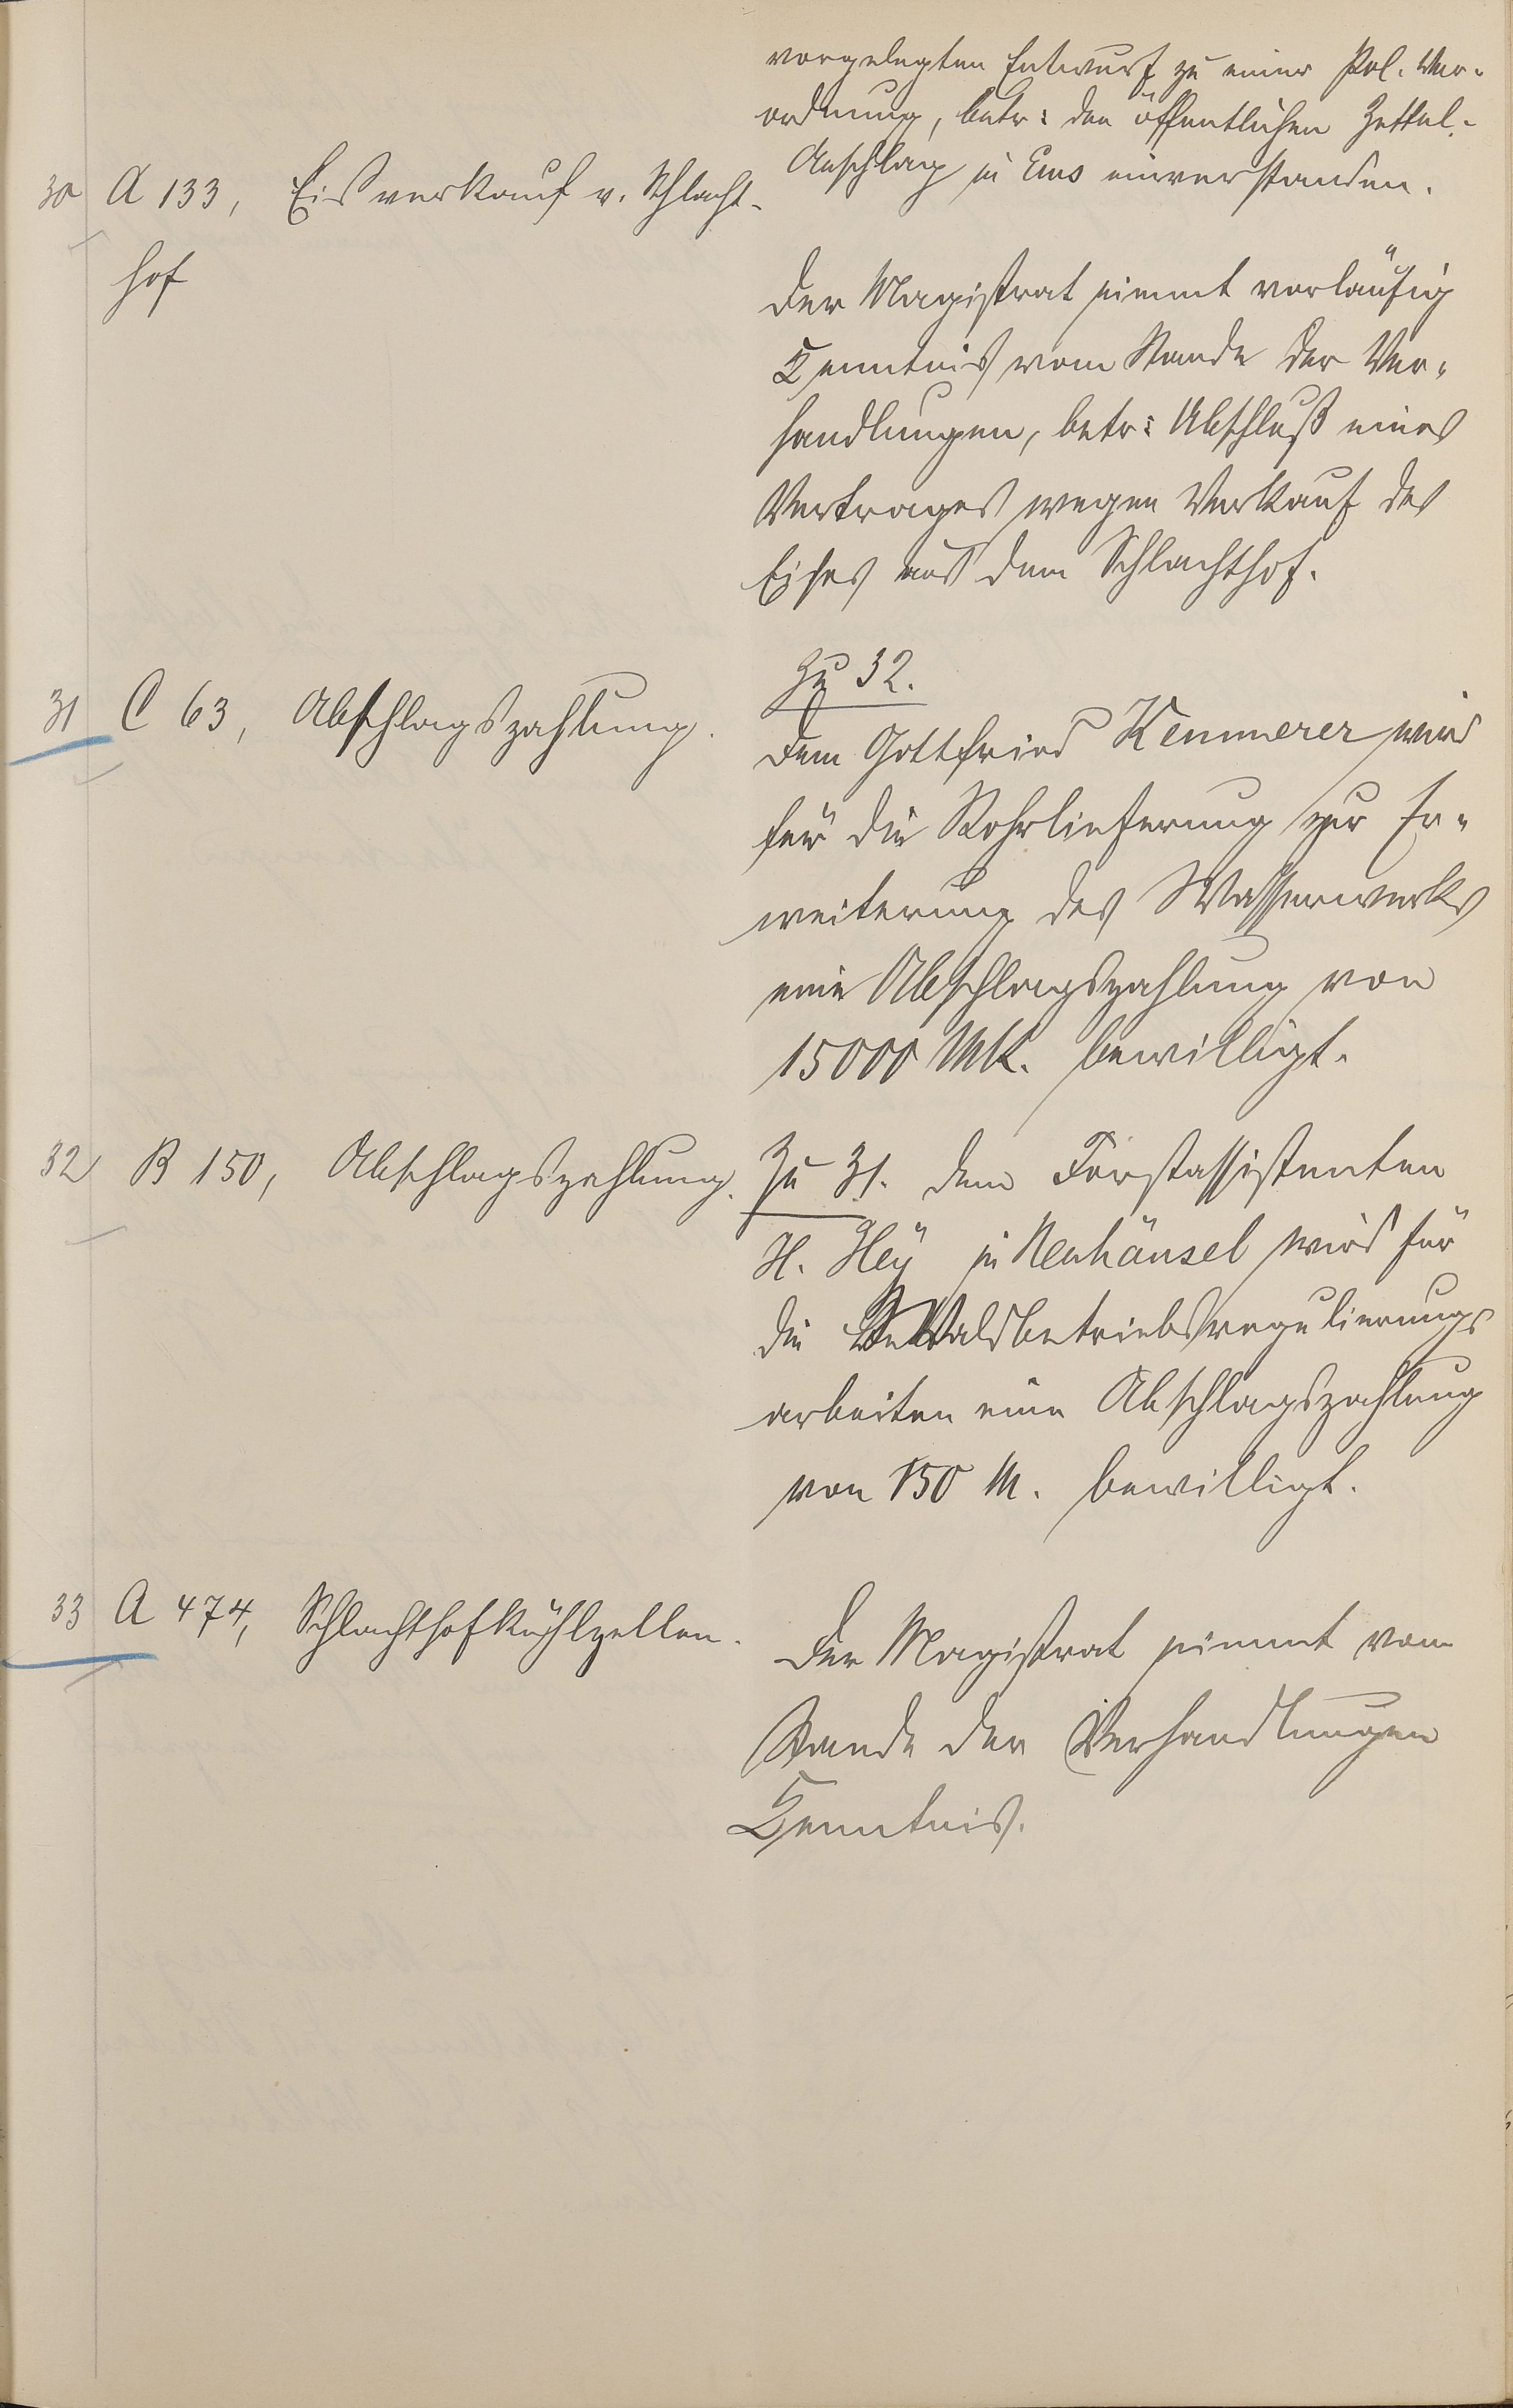 vorgelegten Entwurf zu einer Pol. Ver-
ordnung, betr: den öffentlichen Zettel-
Anschlag in Ems einverstanden.
30 A 133, Eisverkauf v. Schlacht-
hof
Der Magistrat nimmt vorläufig
Kenntnis vom Stande der Ver-
handlungen, betr: Abschluß eines
Vertrages wegen Verkauf des
Eises aus dem Schlachthof.
31 C 63, Abschlagszahlung.
Zu 32.
Dem Gottfried Kemmerer wird
für die Rohrlieferung zur Er-
weiterung des Wasserwerks
eine Abschlagszahlung von
15000 Mk. bewilligt.
32 B 150, Abschlagszahlung.
Zu 31. Dem Forstassistenten
H. Heÿ in Neuhäusel wird für
die Waldbetriebsregulierungs
arbeiten eine Abschlagszahlung
von 150 M. bewilligt.
33 A 474, Schlachthofkühlzellen.
Der Magistrat nimmt vom
Stande der Verhandlungen
Kenntnis.